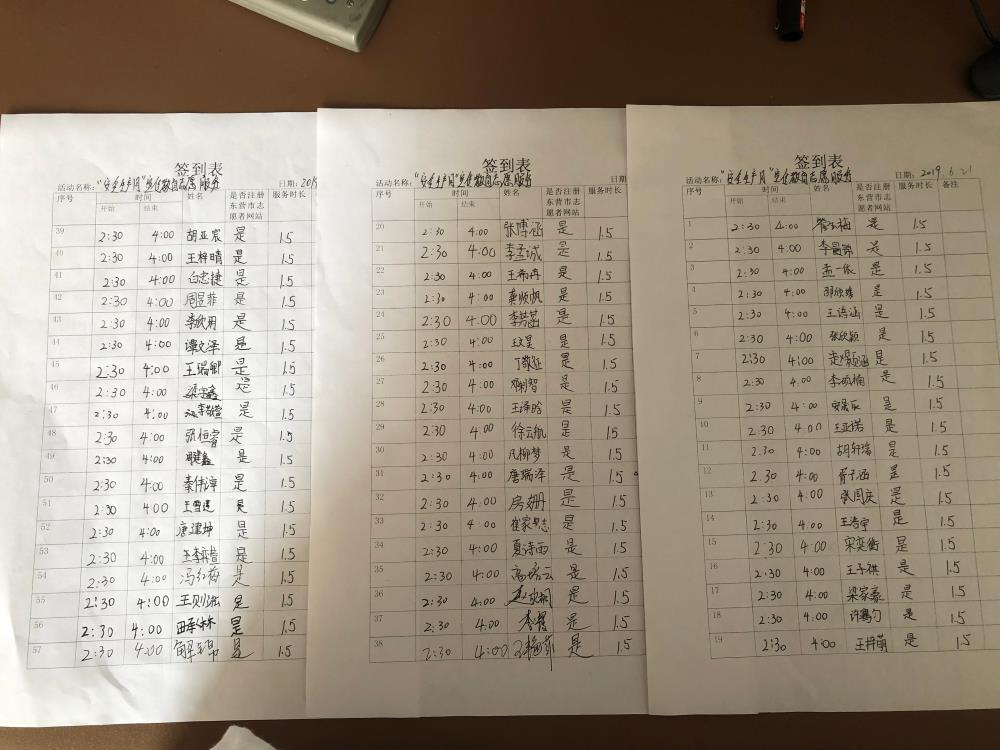 签到表
活动名称:"安全生产月"安全教育志愿服务 日期: 2019
序号 时间 姓名 是否注册东营市志愿者网站 服务时长
开始 结束
39 2:30 4:00 胡亚宸 是 1.5
40 2:30 4:00 王梓晴 是 1.5
41 2:30 4:00 白志捷 是 1.5
42 2:30 4:00 周昱菲 是 1.5
43 2:30 4:00 李欣玥 是 1.5
44 2:30 4:00 谭文泽 是 1.5
45 2:30 4:00 王瑞卿 是 1.5
46 2:30 4:00 梁宝鑫 是 1.5
47 2:30 4:00 是 1.5
48 2:30 4:00 张恒睿 是 1.5
49 2:30 4:00 是 1.5
50 2:30 4:00 秦伟淖 是 1.5
51 2:30 4:00 是 1.5
52 2:30 4:00 唐建坤 是 1.5
53 2:30 4:00 是 1.5
54 2:30 4:00 冯红梅 是 1.5
55 2:30 4:00 王则泓 是 1.5
56 2:30 4:00 是 1.5
57 2:30 4:00 是 1.5
签到表
活动名称:"安全生产月"安全教育志愿服务 日期
序号 时间 姓名 是否注册东营市志愿者网站 服务时长
开始 结束
20 2:30 4:00 张博涵 是 1.5
21 2:30 4:00 李孟诚 是 1.5
22 2:30 4:00 王希冉 是 1.5
23 2:30 4:00 龚顺帆 是 1.5
24 2:30 4:00 李芳菡 是 1.5
25 2:30 4:00 王文昊 是 1.5
26 2:30 4:00 丁敬征 是 1.5
27 2:30 4:00 邓利智 是 1.5
28 2:30 4:00 王泽晗 是 1.5
29 2:30 4:00 徐云航 是 1.5
30 2:30 4:00 凡柳梦 是 1.5
31 2:30 4:00 唐瑞泽 是 1.5
32 2:30 4:00 房姗 是 1.5
33 2:30 4:00 是 1.5
34 2:30 4:00 夏诗雨 是 1.5
35 2:30 4:00 高培云 是 1.5
36 2:30 4:00 是 1.5
37 2:30 4:00 是 1.5
38 2:30 4:00 是 1.5
签到表
活动名称:"安全生产月"安全教育志愿服务 日期: 2019.6.21
序号 时间 姓名 是否注册东营市志愿者网站 服务时长 备注
开始 结束
1 2:30 4:00 是 1.5
2 2:30 4:00 李昌锦 是 1.5
3 2:30 4:00 孟一依 是 1.5
4 2:30 4:00 是 1.5
5 2:30 4:00 王语涵 是 1.5
6 2:30 4:00 张欣颖 是 1.5
7 2:30 4:00 是 1.5
8 2:30 4:00 李硕楠 是 1.5
9 2:30 4:00 安晟辰 是 1.5
10 2:30 4:00 王亚诺 是 1.5
11 2:30 4:00 胡轩瑞 是 1.5
12 2:30 4:00 胥子涵 是 1.5
13 2:30 4:00 张闫庆 是 1.5
14 2:30 4:00 王浩宇 是 1.5
15 2:30 4:00 宋奕衡 是 1.5
16 2:30 4:00 王子祺 是 1.5
17 2:30 4:00 梁家豪 是 1.5
18 2:30 4:00 是 1.5
19 2:30 4:00 王梓萌 是 1.5